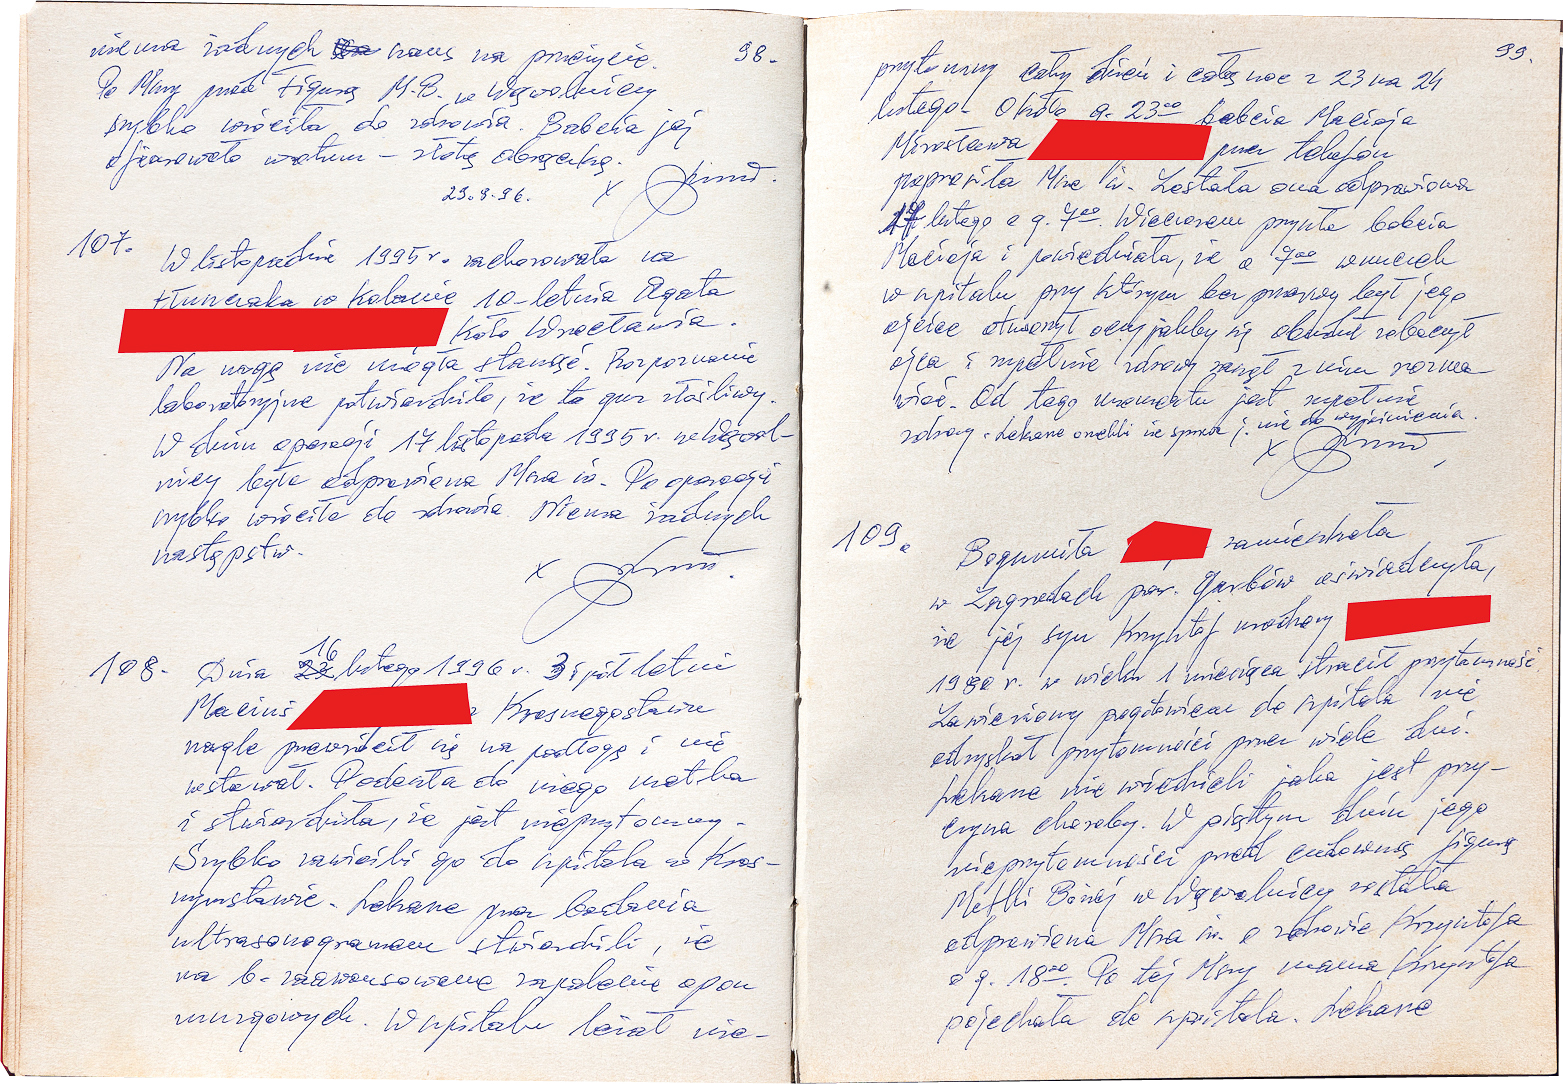 98.
nie ma żadnych szans na przeżycie.
Po Mszy przed figurą M.B. w Wąwolnicy
szybko wróciła do zdrowia. Babcia jej
ofiarowała wotum – złotą obrączkę.
23.9.96. x
107. W listopadzie 1995 r. zachorowała na
w kolanie 10-letnia Agata
koło Wrocławia.
Na nogę nie mogła stanąć. Rozpoznanie
laboratoryjne potwierdziło, że to guz złośliwy.
W dniu operacji 17 listopada 1995 r. w Wąwol-
nicy była odprawiona Msza św. Po operacji
szybko wróciła do zdrowia. Niema żadnych
następstw.
x
108. Dnia 16 lutego 1996 r. 3 i pół letni
Maciuś z Krasnegostawu
nagle przewrócił się na podłogę i nie
wstawał. Podeszła do niego matka
i stwierdziła, że jest nieprzytomny.
Szybko zawieźli go do szpitala w Kras-
nymstawie. Lekarze przez badania
ultrasonogramem stwierdzili, że
ma b. zaawansowane zapalenie opon
mózgowych. W szpitalu leżał nie-
99.
przytomny cały dzień i całą noc z 23 na 24
lutego. Około g. 23⁰⁰ babcia Macieja
Mirosława przez telefon
poprosiła Mszę św. Została ona odprawiona
17 lutego o g. 7⁰⁰. Wieczorem przyszła babcia
Macieja i powiedziała, że o 7⁰⁰ wnuczek
w szpitalu przy którym bez przerwy był jego
ojciec otworzył oczy jakby się obudził zobaczył
ojca i zupełnie zdrowy zaczął z nim rozma-
wiać. Od tego momentu jest zupełnie
zdrowy. Lekarze orzekli że sprawa j. nie do wyjaśnienia.
x
109. Bogumiła zamieszkała
w Zagrodach par. Garbów oświadczyła,
że jej syn Krzysztof urodzony
1980 r. w wieku 1 miesiąca stracił przytomność
Zawieziony pogotowiem do szpitala nie
odzyskał przytomności przez wiele dni.
Lekarze nie wiedzieli jaka jest przy-
czyna choroby. W piątym dniu jego
nieprzytomności przed cudowną figurą
Matki Bożej w Wąwolnicy została
odprawiona Msza św. o zdrowie Krzysztofa
o g. 18⁰⁰. Po tej Mszy mama Krzysztofa
pojechała do szpitala. Lekarze